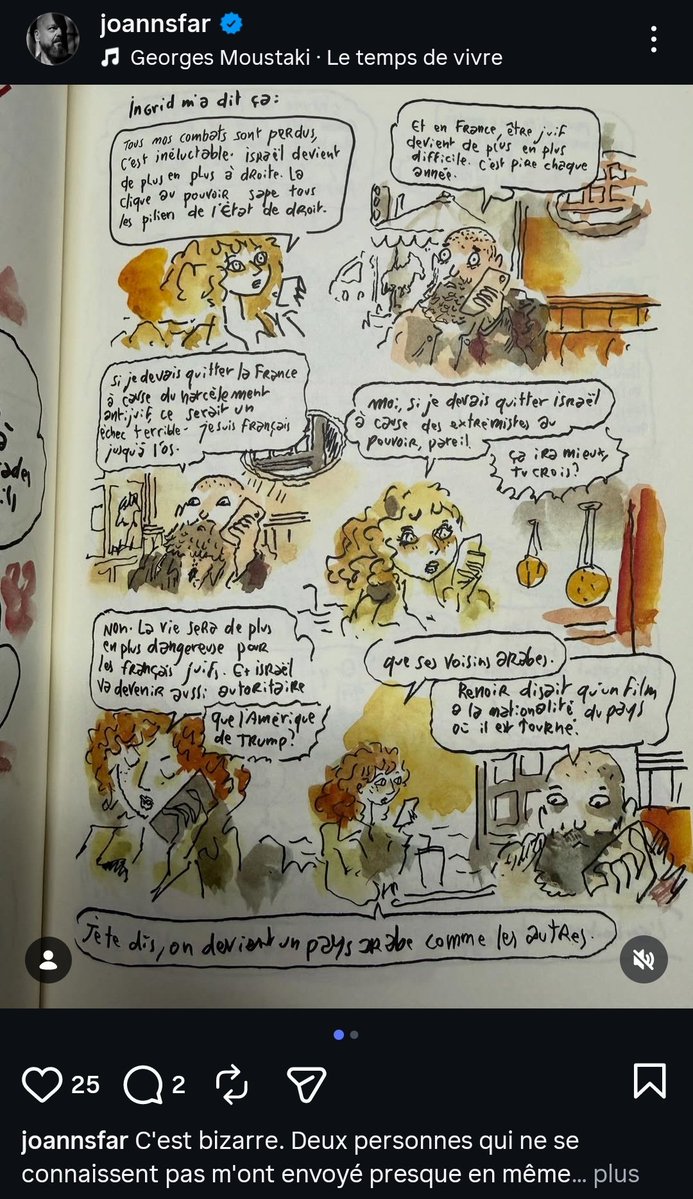 joannsfar
Georges Moustaki · Le temps de vivre
Ingrid m'a dit ça:
Tous mos combats sont perdus,
c'est inéluctable. israël devient
de plus en plus à droite. La
clique au pouvoir sape tous
les pilien de l'État de droit.
Et en France, être juif
devient de plus en plus
difficile. C'est pire chaque
année.
Si je devais quitter la France
à cause du harcèlement
antijuif ce serait un
échec terrible. je suis français
jusqu'à l'os.
Moi, si je devais quitter israël
à cause des extrémistes au
pouvoir, pareil.
ça ira mieux,
tu crois?
Non. La vie sera de plus
en plus dangereuse pour
les français juifs. Et israël
va devenir aussi autoritaire
que l'Amérique
de Trump?
que ses voisins arabes.
Renoir disait qu'un film
a la nationalité du pays
où il est tourné.
Je te dis, on devient un pays arabe comme les autres.
25
2
joannsfar C'est bizarre. Deux personnes qui ne se
connaissent pas m'ont envoyé presque en même... plus